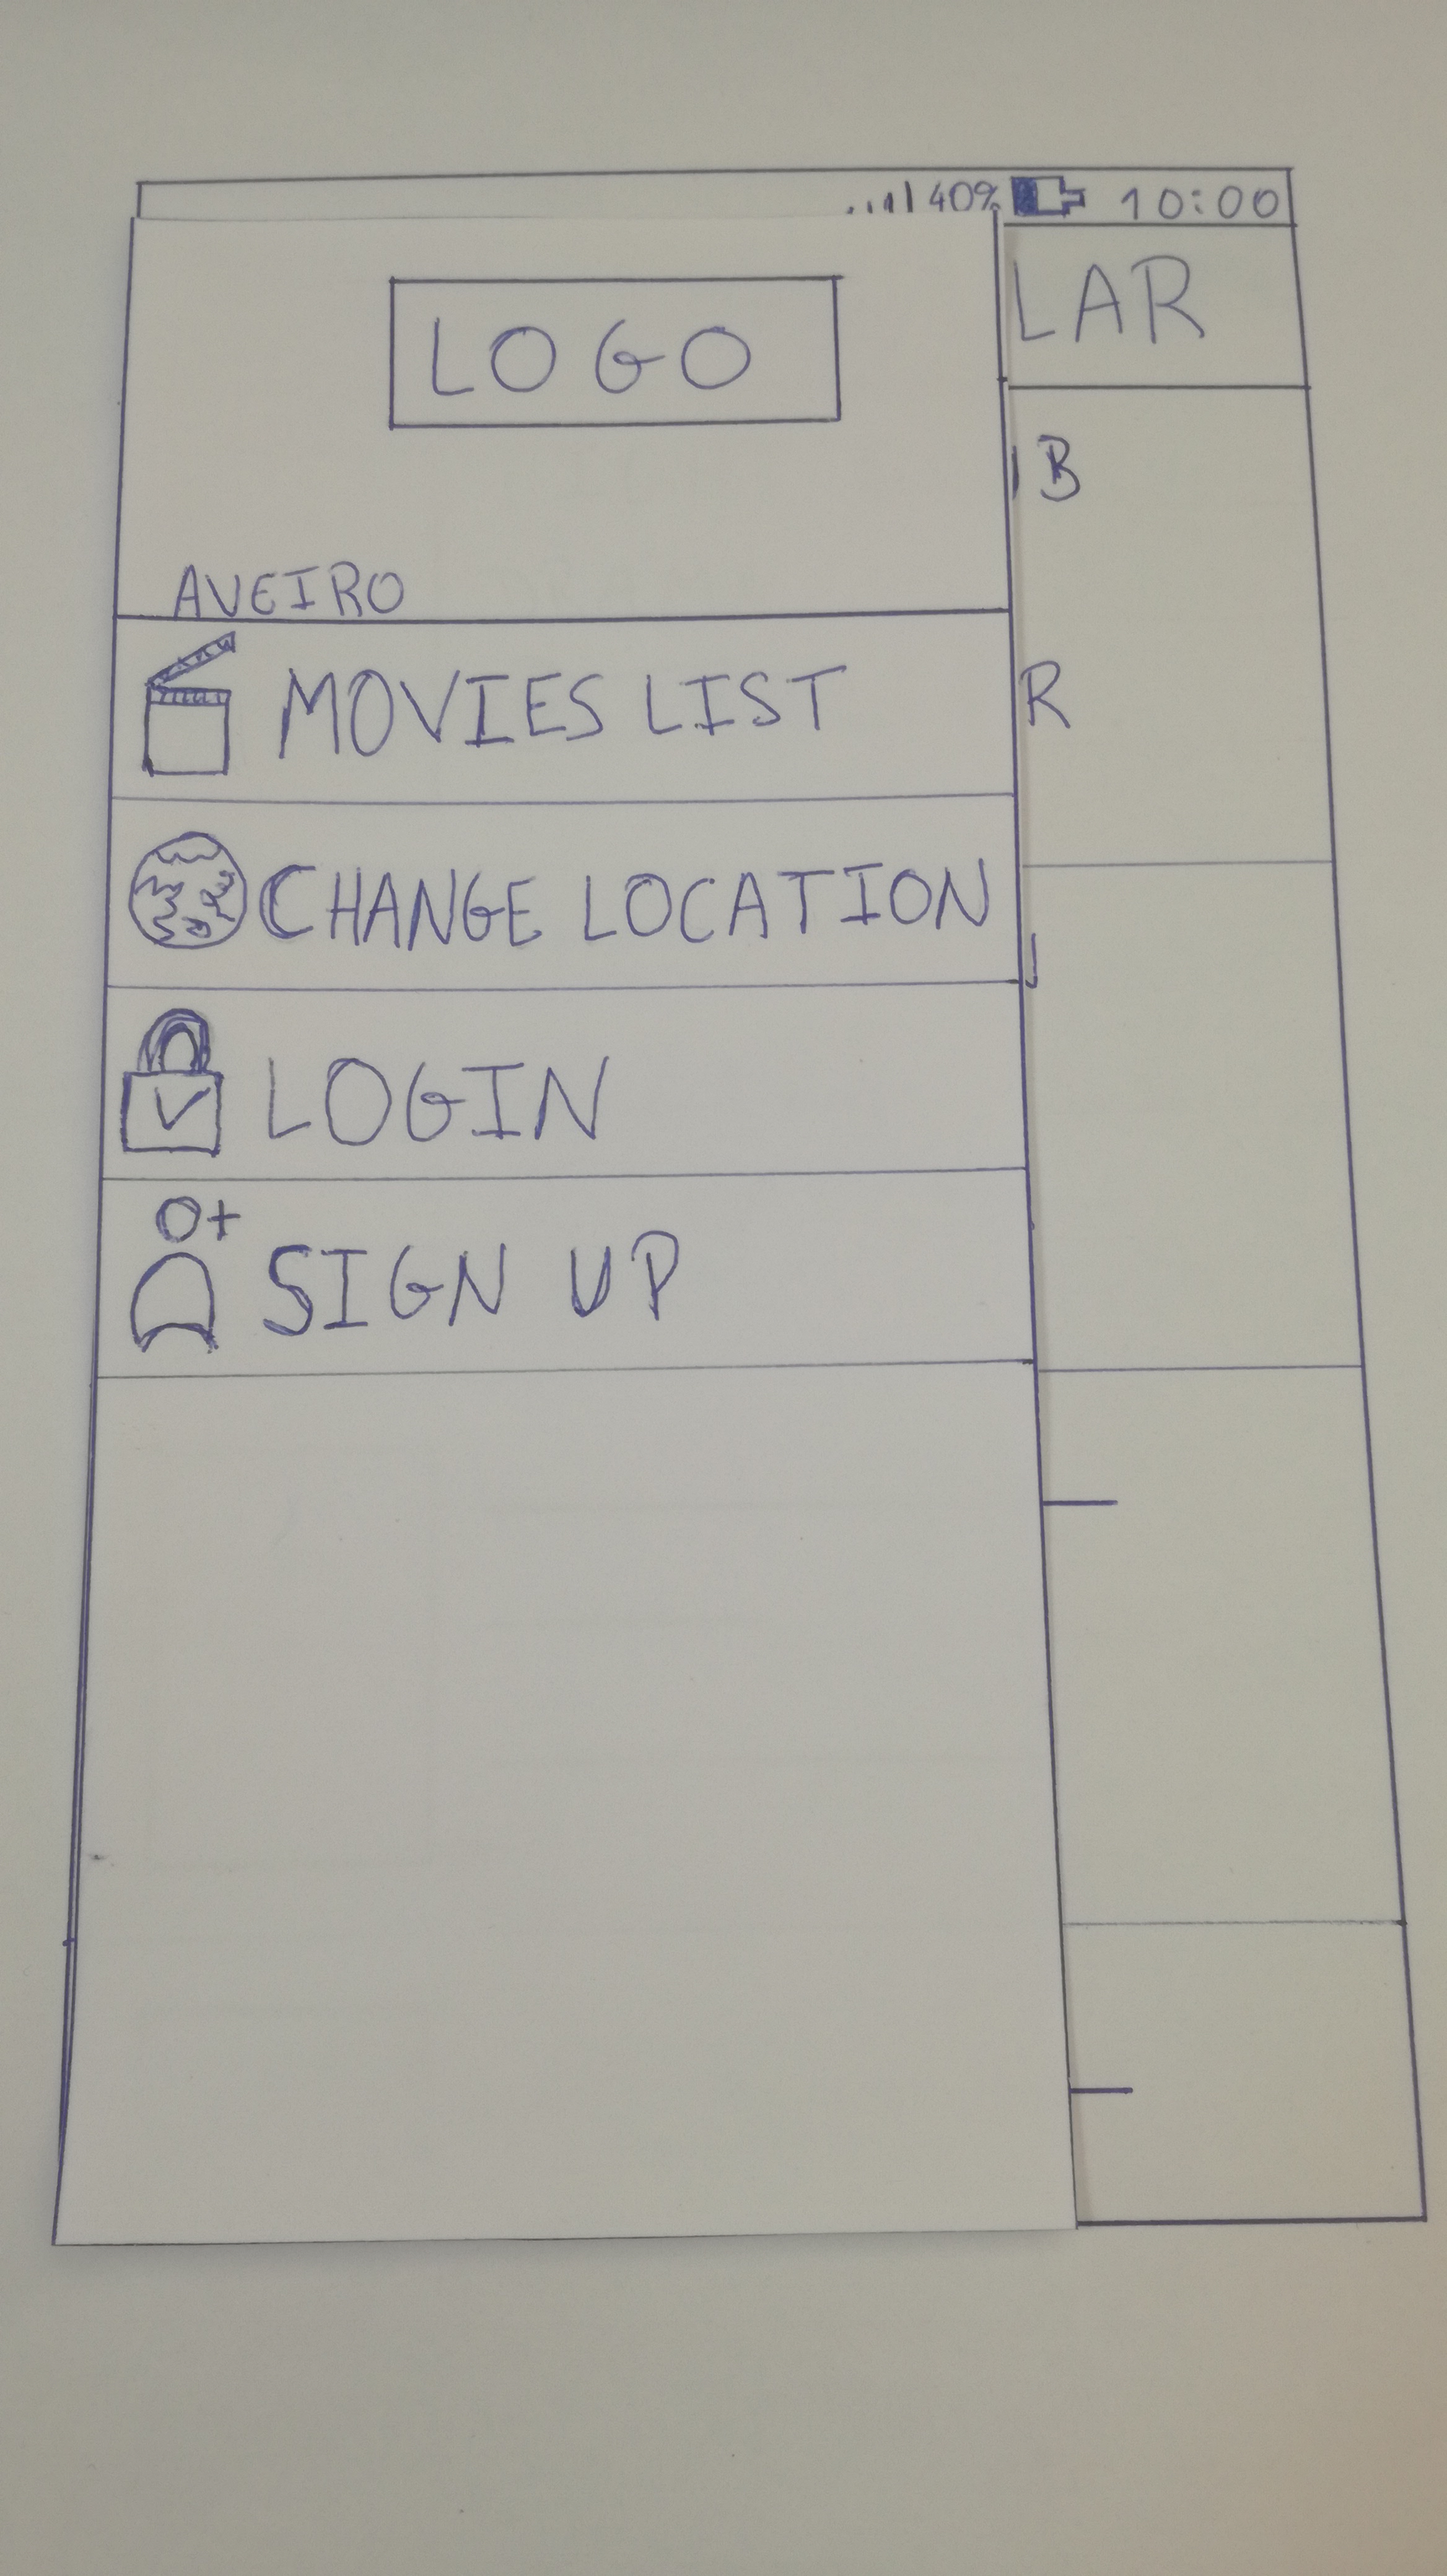 40% 10:00
LOGO
LAR
B
AVEIRO
MOVIES LIST
R
CHANGE LOCATION
LOGIN
SIGN UP